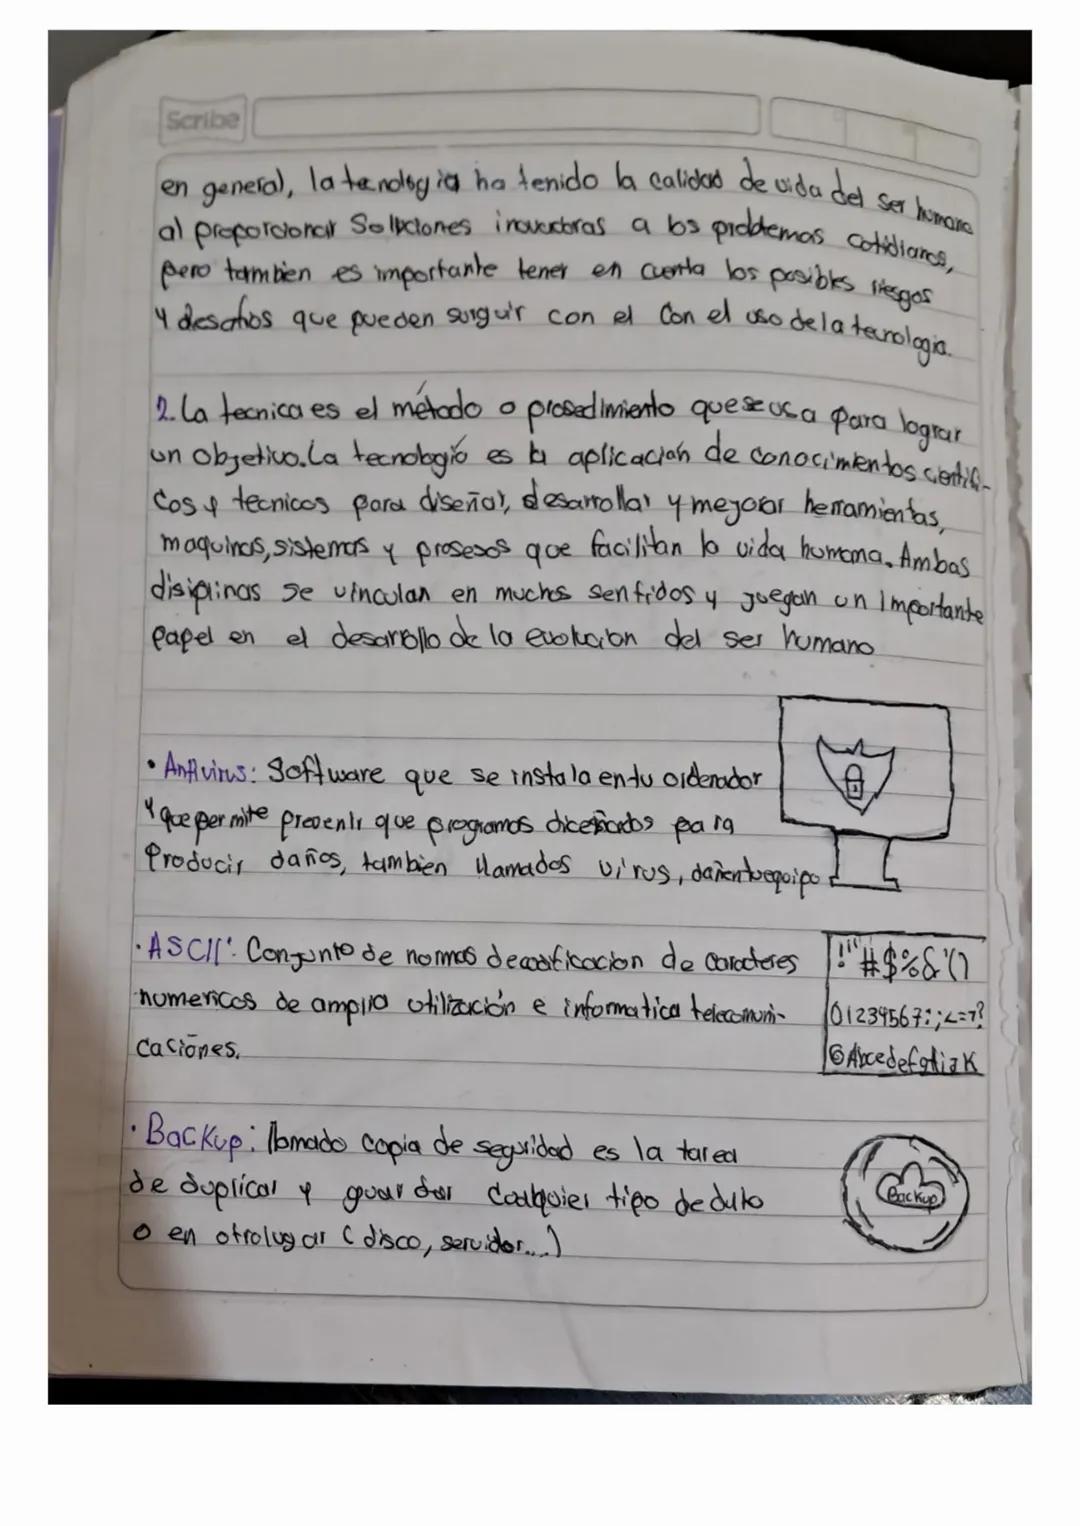 Scribe
en general, la tecnologia ha tenido la calidad de vida del ser humano
al proporcionar Soluciones inovadoras a los problemas cotidianos,
pero tambien es importante tener en cuenta los posibles riesgos
y desafios que pueden surguir con el Con el uso de la tecnologia.
2. La tecnica es el método o prosedimiento que se usa para lograr
un objetivo. La tecnologió es la aplicación de conocimientos cientifi-
cos y tecnicos para diseñar, desarrollar y mejorar herramientas,
maquinas, sistemas y prosesos que facilitan la vida humana. Ambas
disiplinas se vinculan en muchos sentidos y juegan un importante
papel en el desarrollo de la evolucion del ser humano
• Antivirus: Software que se instala en tu ordenador
y que permite prevenir que programas diceñados para
Producir daños, tambien llamados virus, dañen tu equipo
• ASCII: Conjunto de normas de codificacion de caracteres
numericos de amplia utilización e informatica telecomuni-
caciones.
!"#$%&'()
01234567:;<=>?
@Abcdefghijk
• Backup: llamado copia de seguridad es la tarea
de duplicar y guardar Cualquier tipo de dato
o en otro lugar (disco, servidor...)
Backup